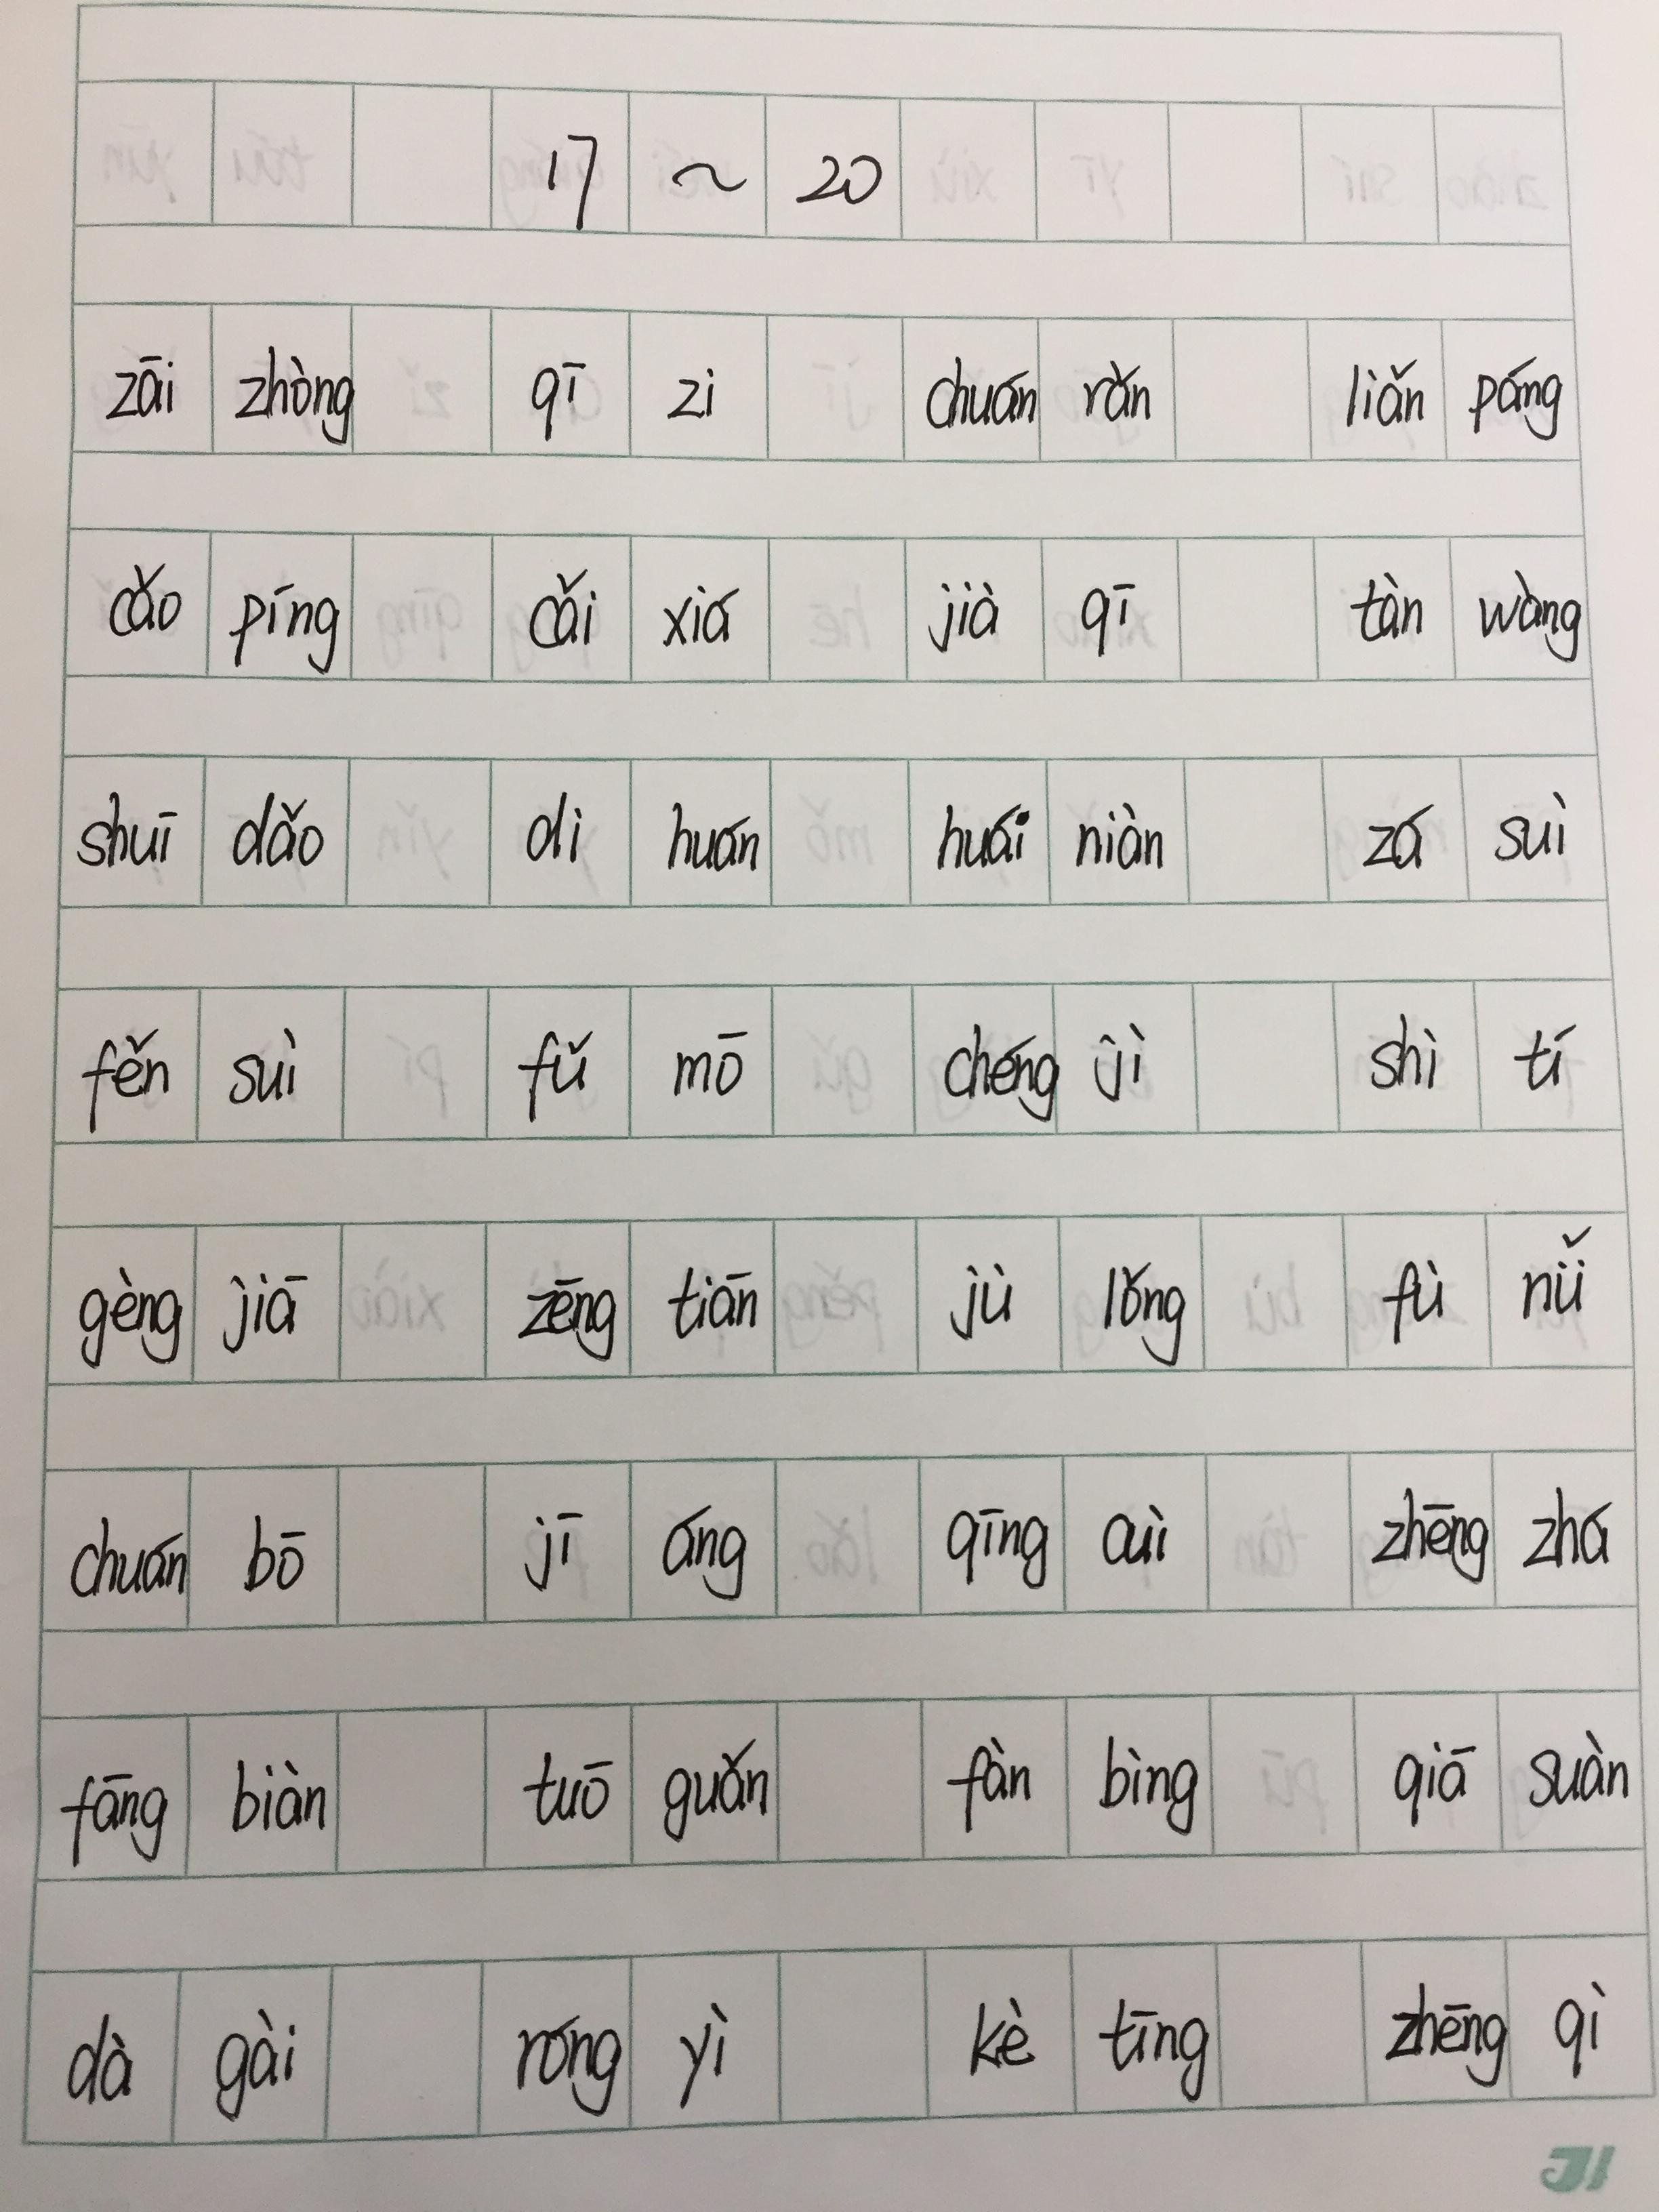 17 ~ 20
zāi zhòng qī zi chuán rǎn liǎn páng
cǎo píng cǎi xiá jià qī tàn wàng
shuī dǎo di huán huái niàn zá suì
fěn suì fǔ mō chéng jì shì tí
gèng jiā zēng tiān jù lǒng fù nǚ
chuán bō jī áng qīng cuì zhēng zhá
fāng biàn tuō guǎn fàn bìng qiā suàn
dà gài róng yì kè tīng zhēng qì